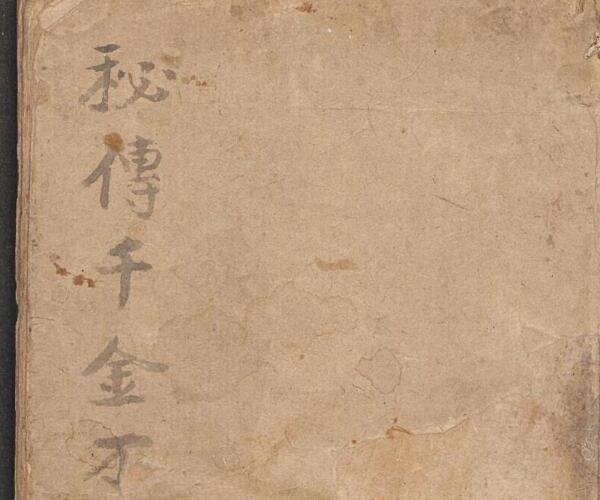 秘傳千金方